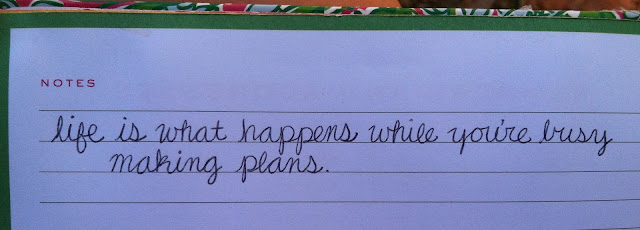 NOTES
life is what happens while you're busy
making plans.